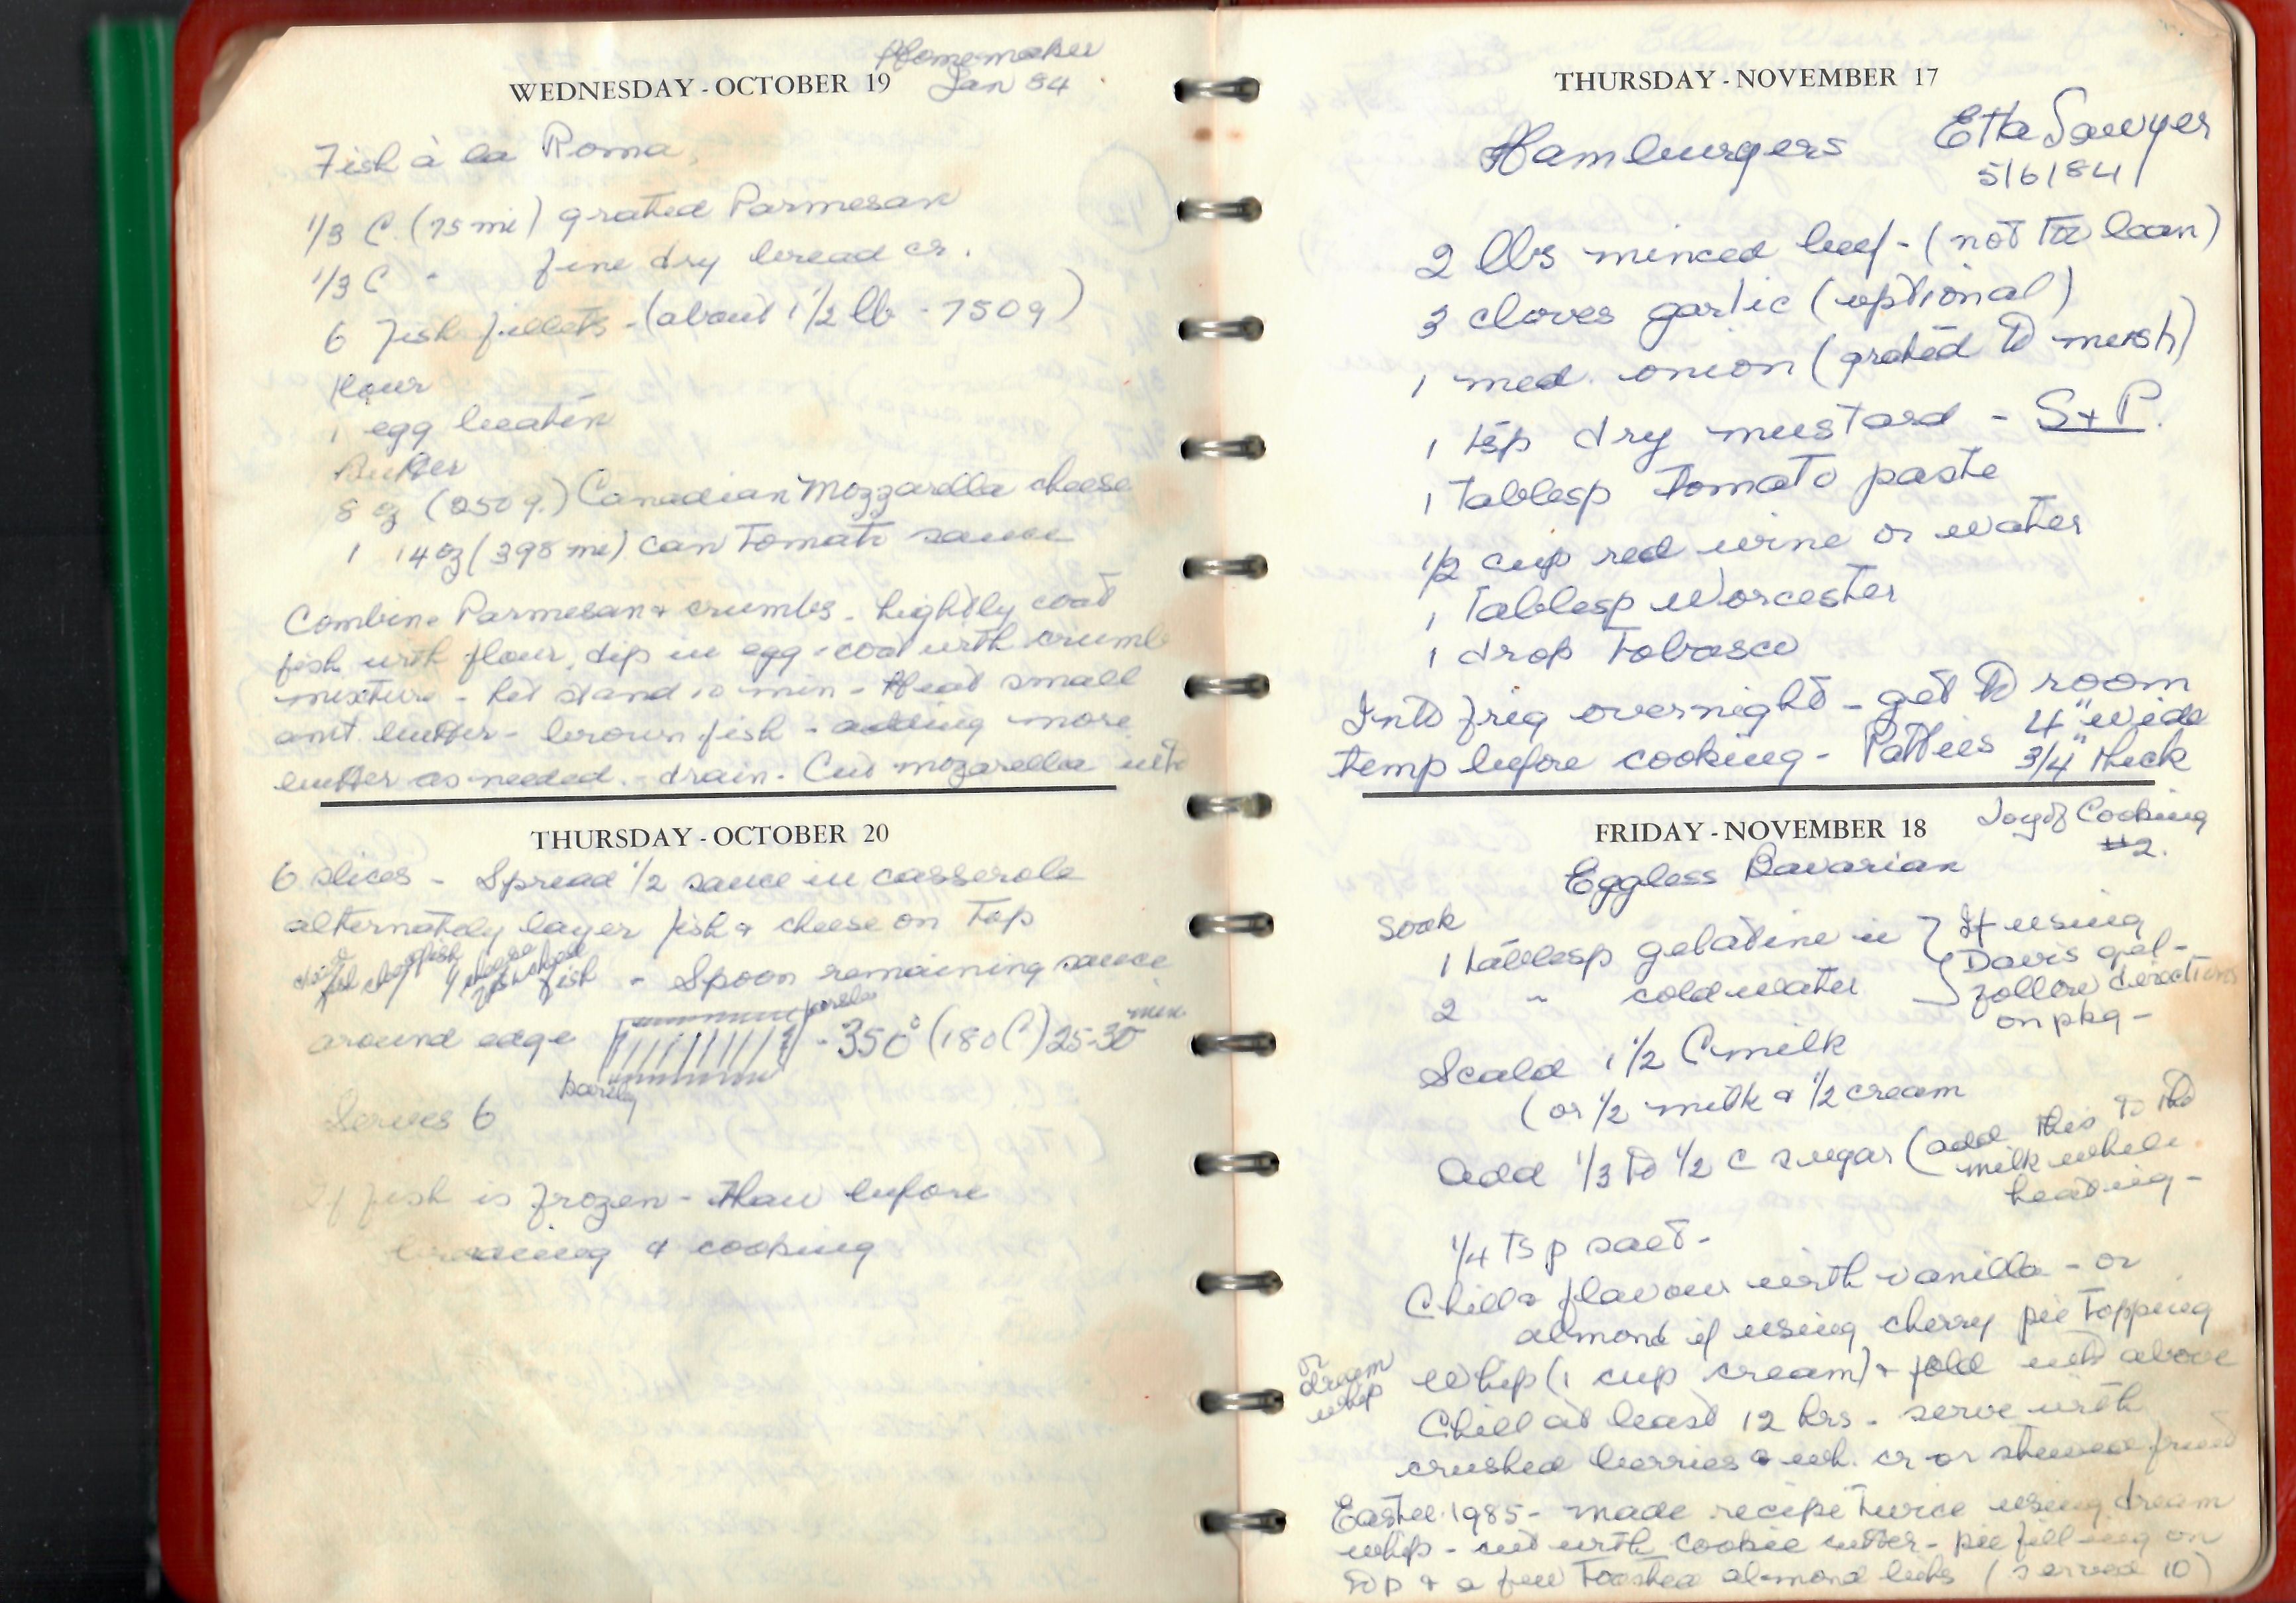 WEDNESDAY - OCTOBER 19
Homemaker
Jan 84
Fish à la Roma
1/3 C. (75 ml) grated Parmesan
1/3 C " fine dry bread cr.
6 Fish fillets - (about 1 1/2 lb - 750g)
flour
1 egg beaten
Butter
8 oz (250 g.) Canadian Mozzarella cheese
1 14 oz (398 ml) can Tomato sauce
Combine Parmesan + crumbs - Lightly coat
fish with flour, dip in egg - coat with crumb
mixture - Let stand 10 min - Heat small
amt. butter - brown fish - adding more
butter as needed. drain - Cut mozarella into
THURSDAY - OCTOBER 20
6 slices - Spread 1/2 sauce in casserole
alternately layer fish & cheese on Top
fish - Spoon remaining sauce
around edge - 350° (180 C) 25-30 min
parsley
Serves 6
If fish is frozen - Thaw before
& cooking
THURSDAY - NOVEMBER 17
Hamburgers Etta Sawyer
5/6/84
2 lbs minced beef - (not Too lean)
3 cloves garlic (optional)
1 med. onion (grated To mush)
1 Tsp dry mustard - S+P.
1 Tablesp Tomato paste
1/2 cup red wine or water
1 Tablesp Worcester
1 drop Tobasco
Into frig overnight - get To room
temp before cooking - Patties 4" wide
3/4" thick
FRIDAY - NOVEMBER 18
Joy of Cooking
#2.
Eggless Bavarian
Soak
1 Tablesp gelatine in
2 " cold water
If using
Davis gel-
follow directions
on pkg -
Scald 1 1/2 C milk
(or 1/2 milk & 1/2 cream
Add 1/3 To 1/2 c sugar (add this To the
milk while
heating -
1/4 Tsp salt -
Chill & flavour with vanilla - or
almond if using cherry pie Topping
or
dream
whip
Whip (1 cup cream) + fold into above
Chill at least 12 hrs - serve with
crushed berries & wh. cr or stewed fruit
Easter 1985 - made recipe Twice using dream
whip - cut with cookie cutter - pie filling on
Top & a few Toasted almond (served 10)